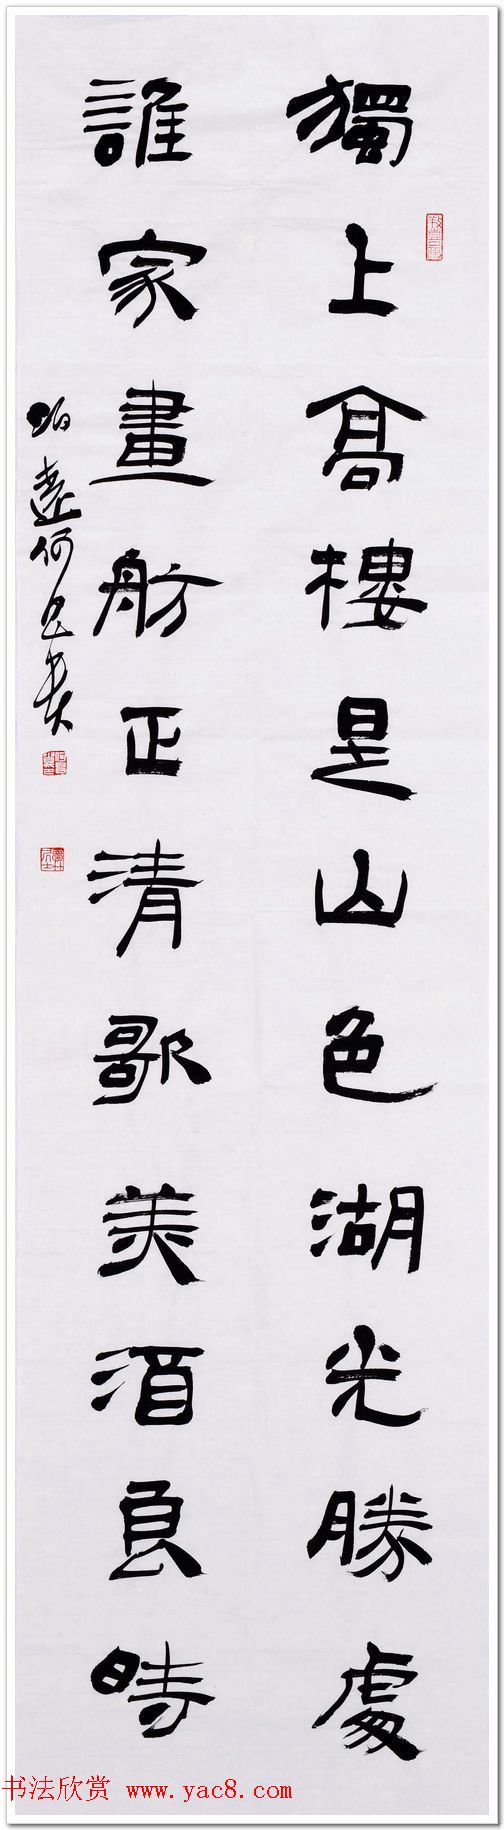 獨上高樓是山色湖光勝處
誰家畫舫正清歌美酒良時
书法欣赏 www.yac8.com